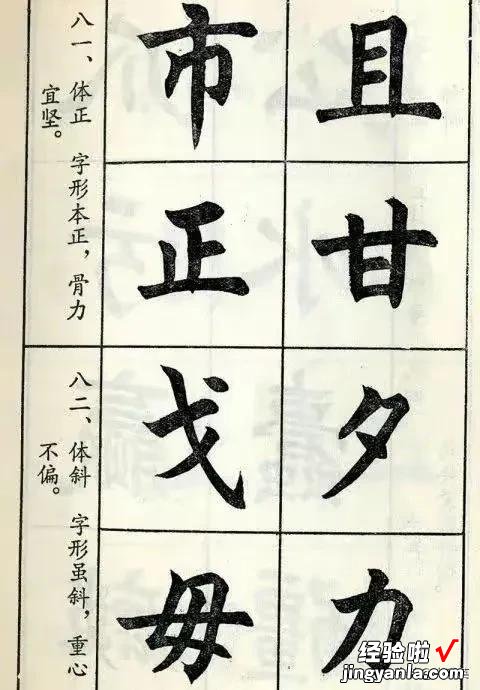 八一、体正 字形本正，骨力
宜坚。
且甘
市正
八二、体斜 字形虽斜，重心
不偏。
夕力
戈毋
经验啦√
jingyanla.com